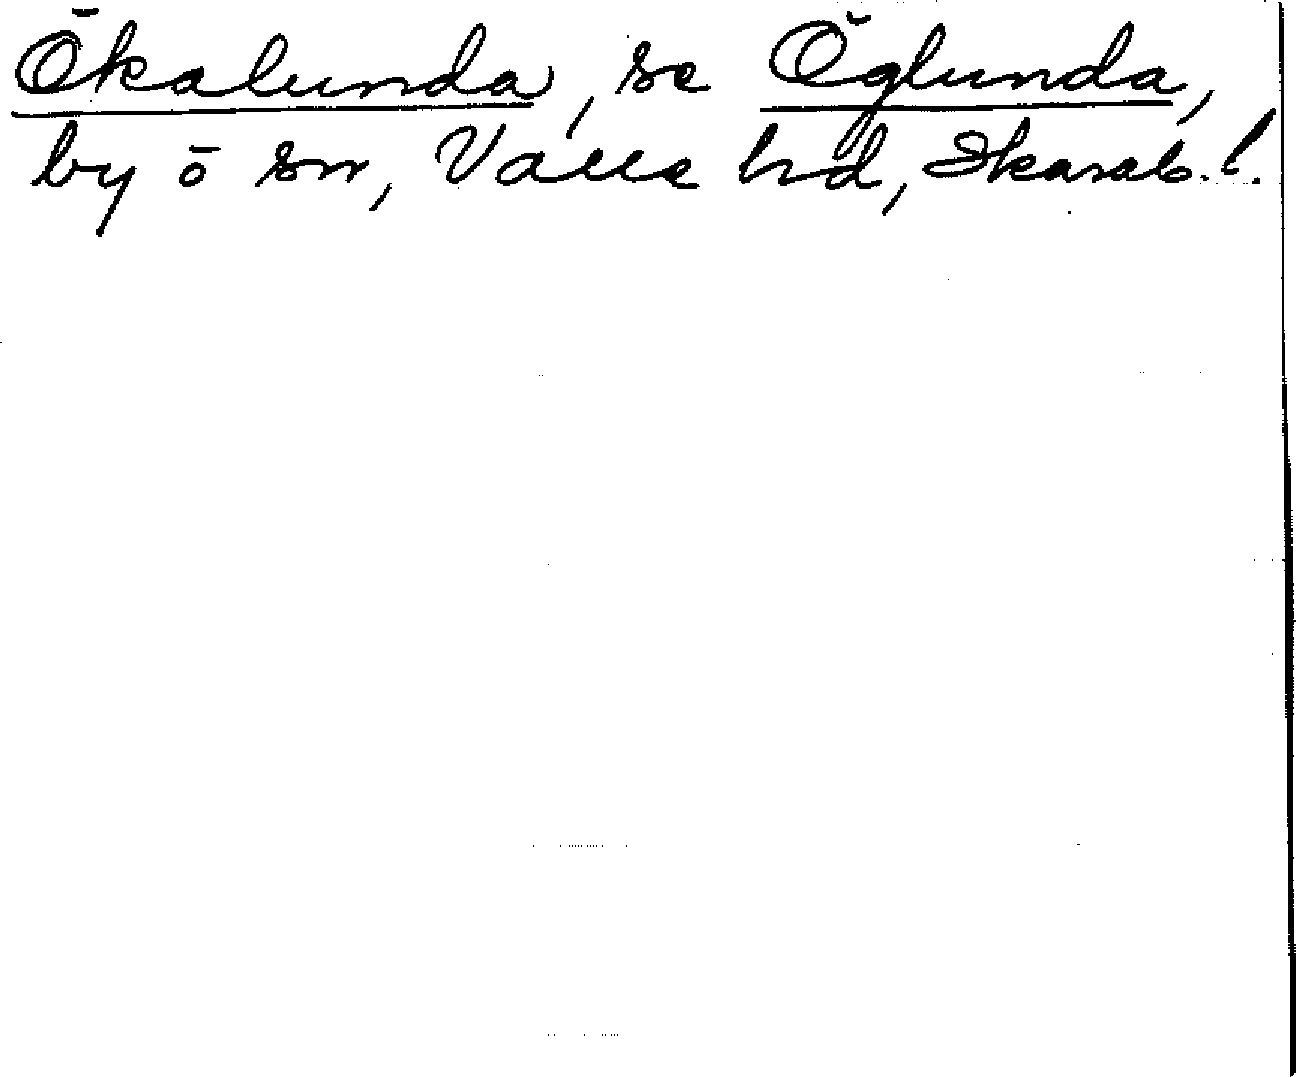 Ökalunda, se Öglunda,
by ō sn, Valle hd, Skarab. l.